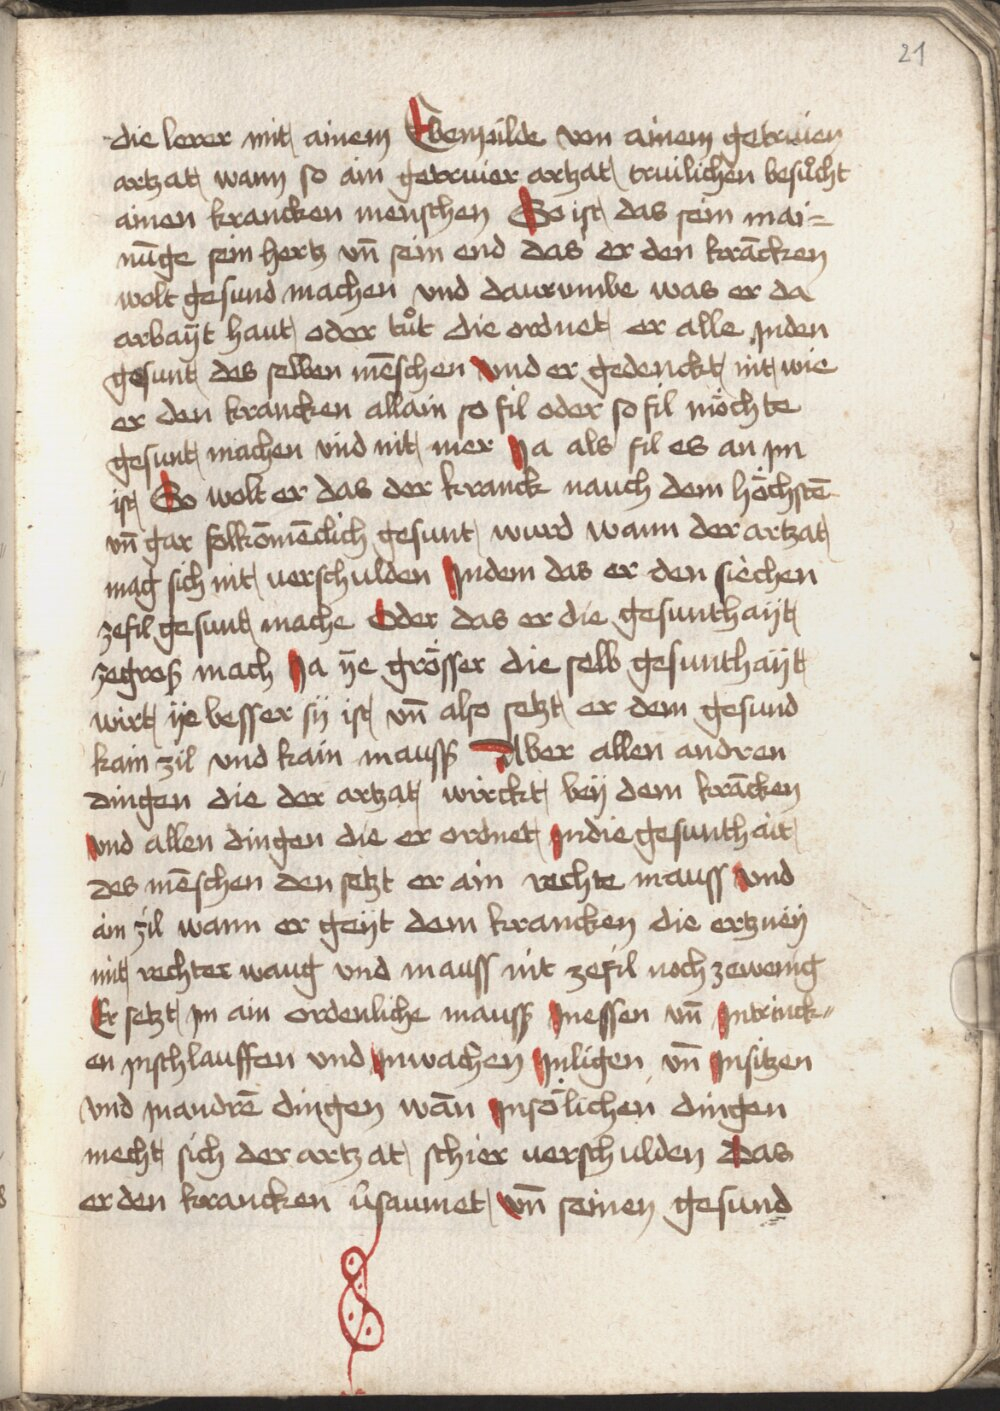 21
die lerer mit ainem Ebenpilde von ainem getruien
artzat wann so ain getruier artzat truilichen besůcht
ainen krancken menschen So ist das sein mai=
nūge sein hertz vn̄ sein end das er den krācken
wolt gesund machen vnd daurumbe was er da
arbaÿt haut oder tůt die ordnet er alle jnden
gesunt des selben mēschen vnd er gedenckt nit wie
er den krancken allain so fil oder so fil möchte
gesunt machen vnd nit mer Ja als fil es an jm
ist So wolt er das der kranck nauch dem höchstē
vn̄ gar folkōmēclich gesunt wurd wann der artzat
mag sich nit uerschulden Jndem das er den siechen
zefil gesunt mache Oder das er die gesunthaÿt
zegroß mach Ja ÿe grösser die selb gesunthaÿt
wirt ÿe besser sÿ ist vn̄ also setzt er dem gesund
kain zil vnd kain mauss Aber allen andren
dingen die der artzat wirckt beÿ dem krācken
vnd allen dingen die er ordnet jndie gesunthait
des mēschen den setzt er ain rechte mauss vnd
ain zil wann er geÿt dem krancken die ertzneÿ
mit rechter waug vnd mauss nit zefil noch zewenig
Er setzt jm ain ordenliche mauss Jnessen vn̄ Jntrinck=
en jnschlauffen vnd Jnwachen Jnligen vn̄ Jnsitzen
vnd jnandrē dingen wān Jnsölichen dingen
mecht sich der artzat schier uerschulden Das
er den krancken v̂saumet vn̄ seinen gesund